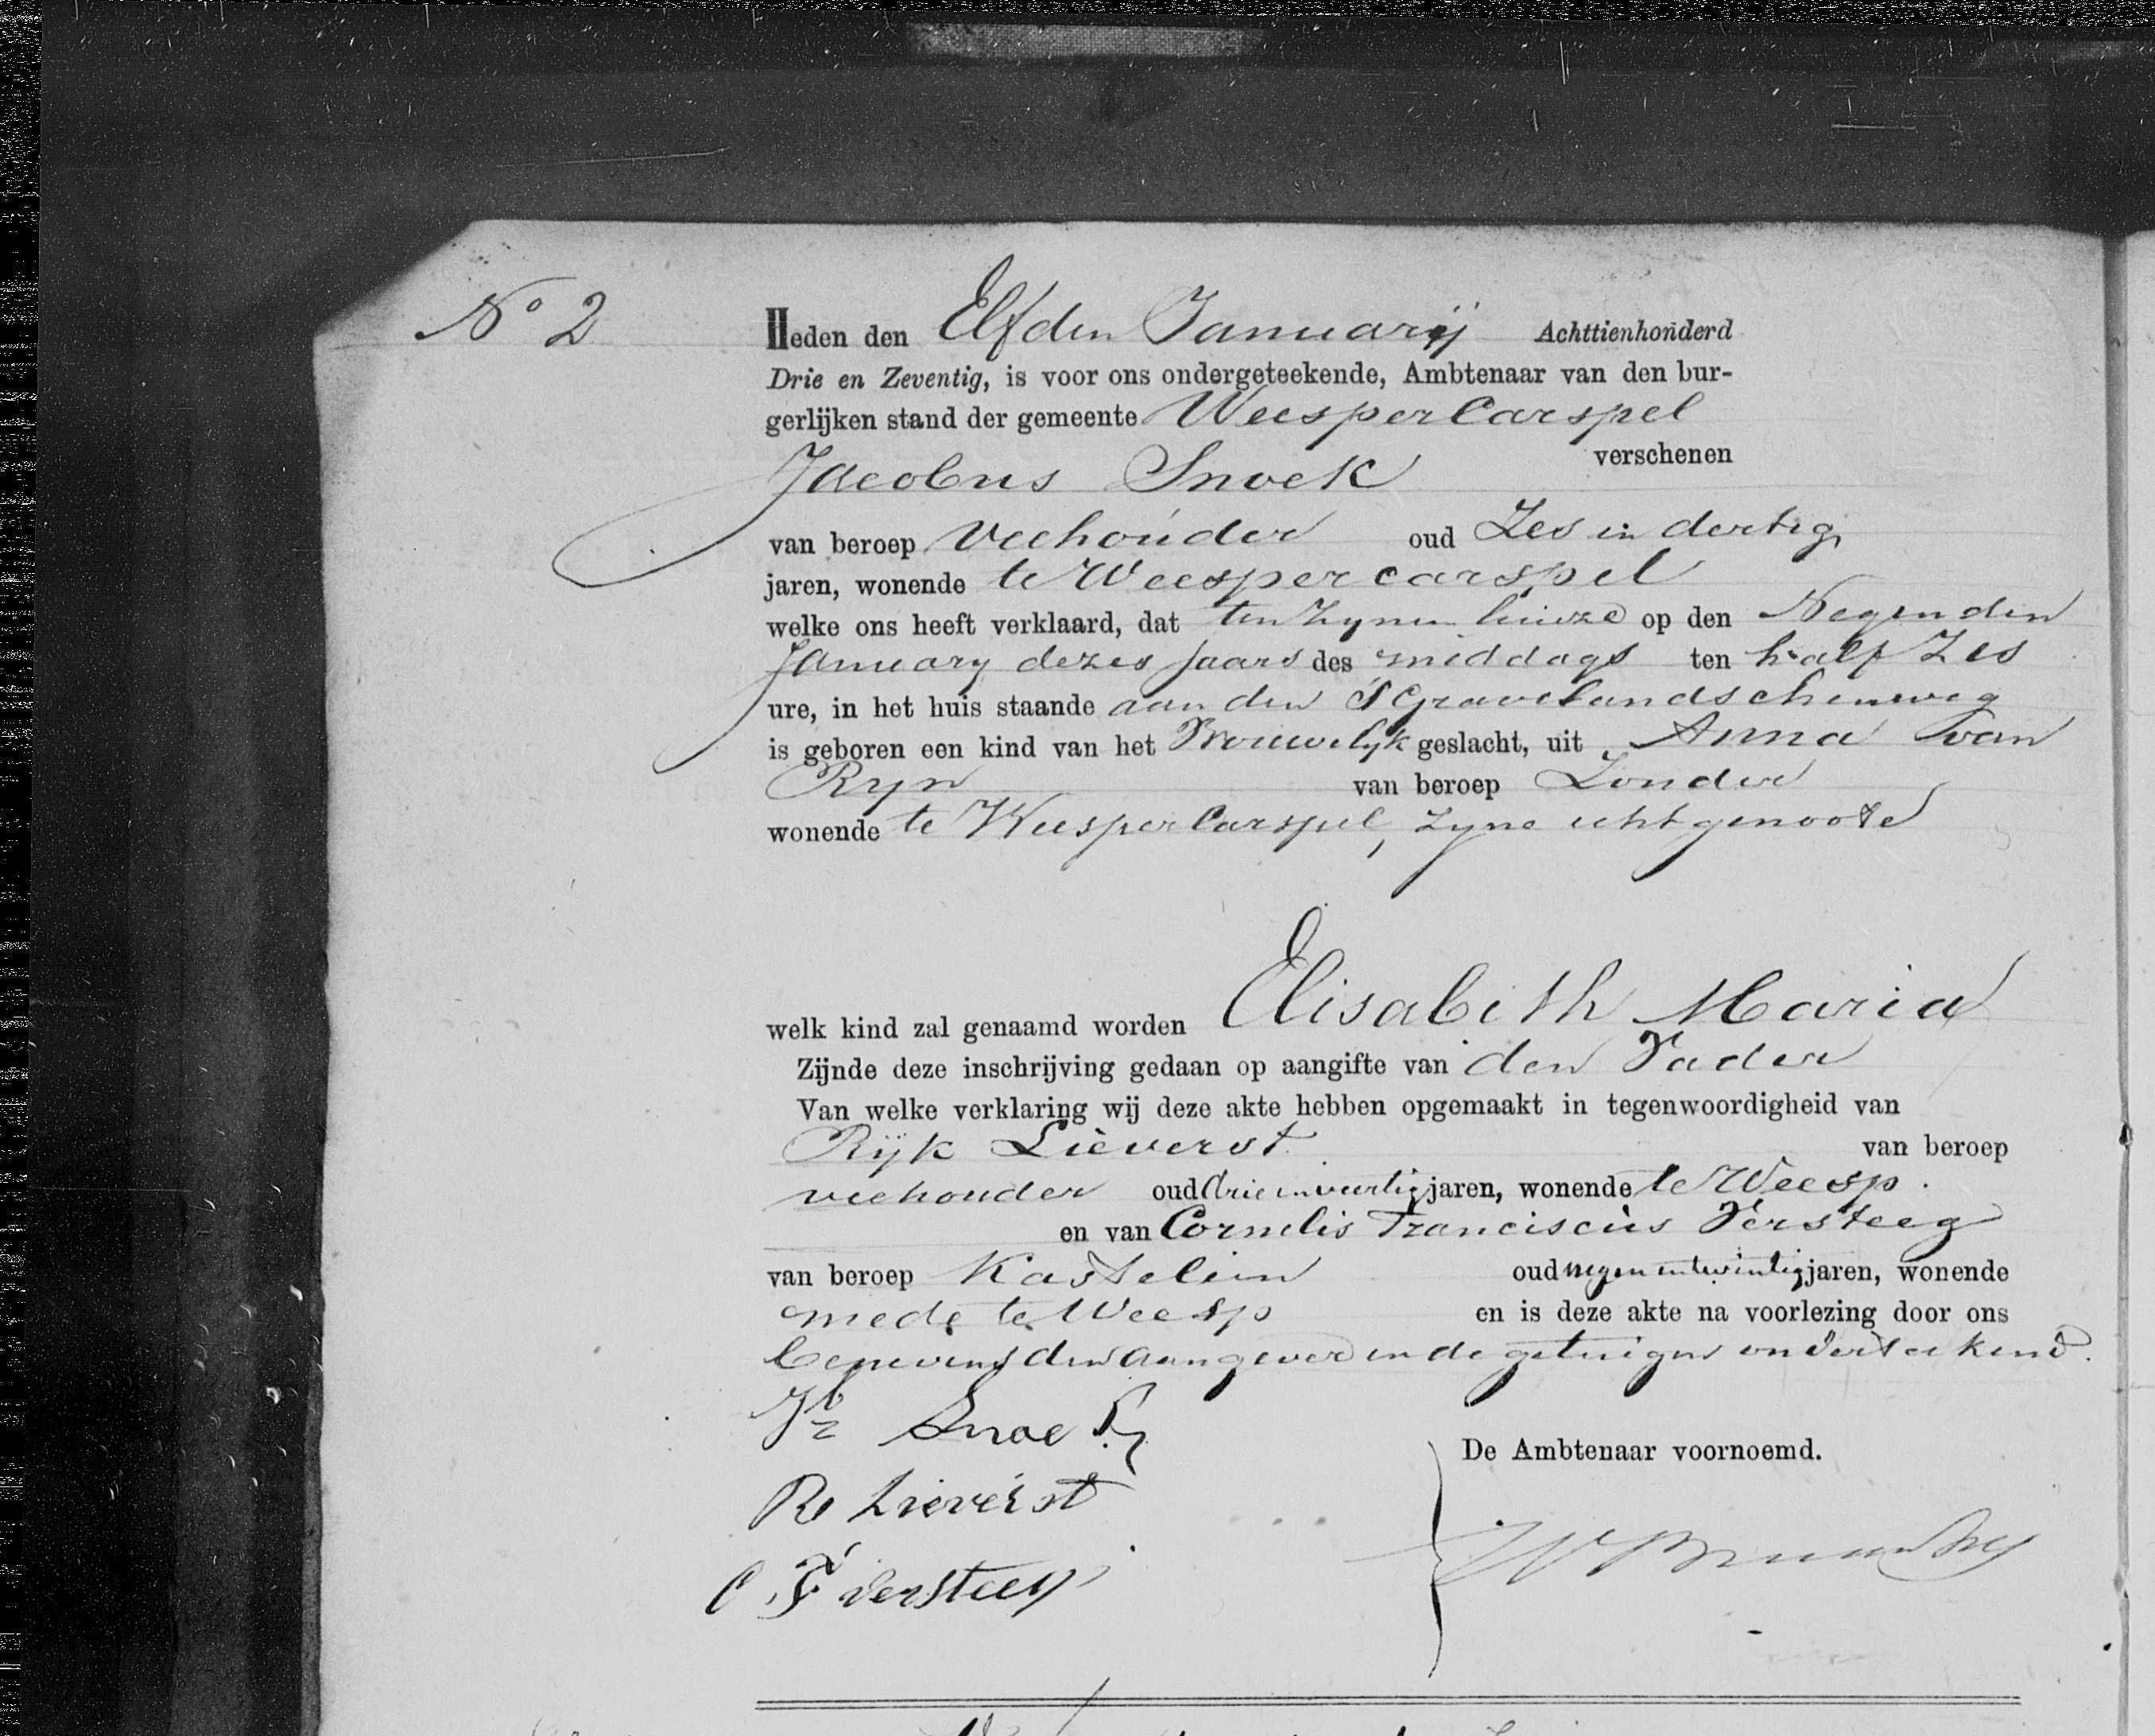 No 2
Heden den Elfden Januarij Achttienhonderd
Drie en Zeventig, is voor ons ondergeteekende, Ambtenaar van den bur-
gerlijken stand der gemeente WeesperCarspel
verschenen
Jacobus Snoek
van beroep Veehouder oud Zes en dertig
jaren, wonende te Weespercarspel
welke ons heeft verklaard, dat ten Zynen huize op den Negenden
January dezes jaars des middags ten half Zes
ure, in het huis staande aan den S Gravelandschenweg
is geboren een kind van het Vrouwelyk geslacht, uit Anna van
Ryn van beroep Zonder
wonende te WeesperCarspel, Zyne echtgenoote
welk kind zal genaamd worden Elisabeth Maria
Zijnde deze inschrijving gedaan op aangifte van den Vader
Van welke verklaring wij deze akte hebben opgemaakt in tegenwoordigheid van
Rijk Lieverst van beroep
veehouder oud drie en veertig jaren, wonende te Weesp.
en van Cornelis Franciscus Versteeg
van beroep Kastelein oud negen en twintig jaren, wonende
mede te Weesp en is deze akte na voorlezing door ons
benevens den aangever en de getuigen onderteekend.
Jb Snoek
R Lieverst
C F Versteeg
De Ambtenaar voornoemd.